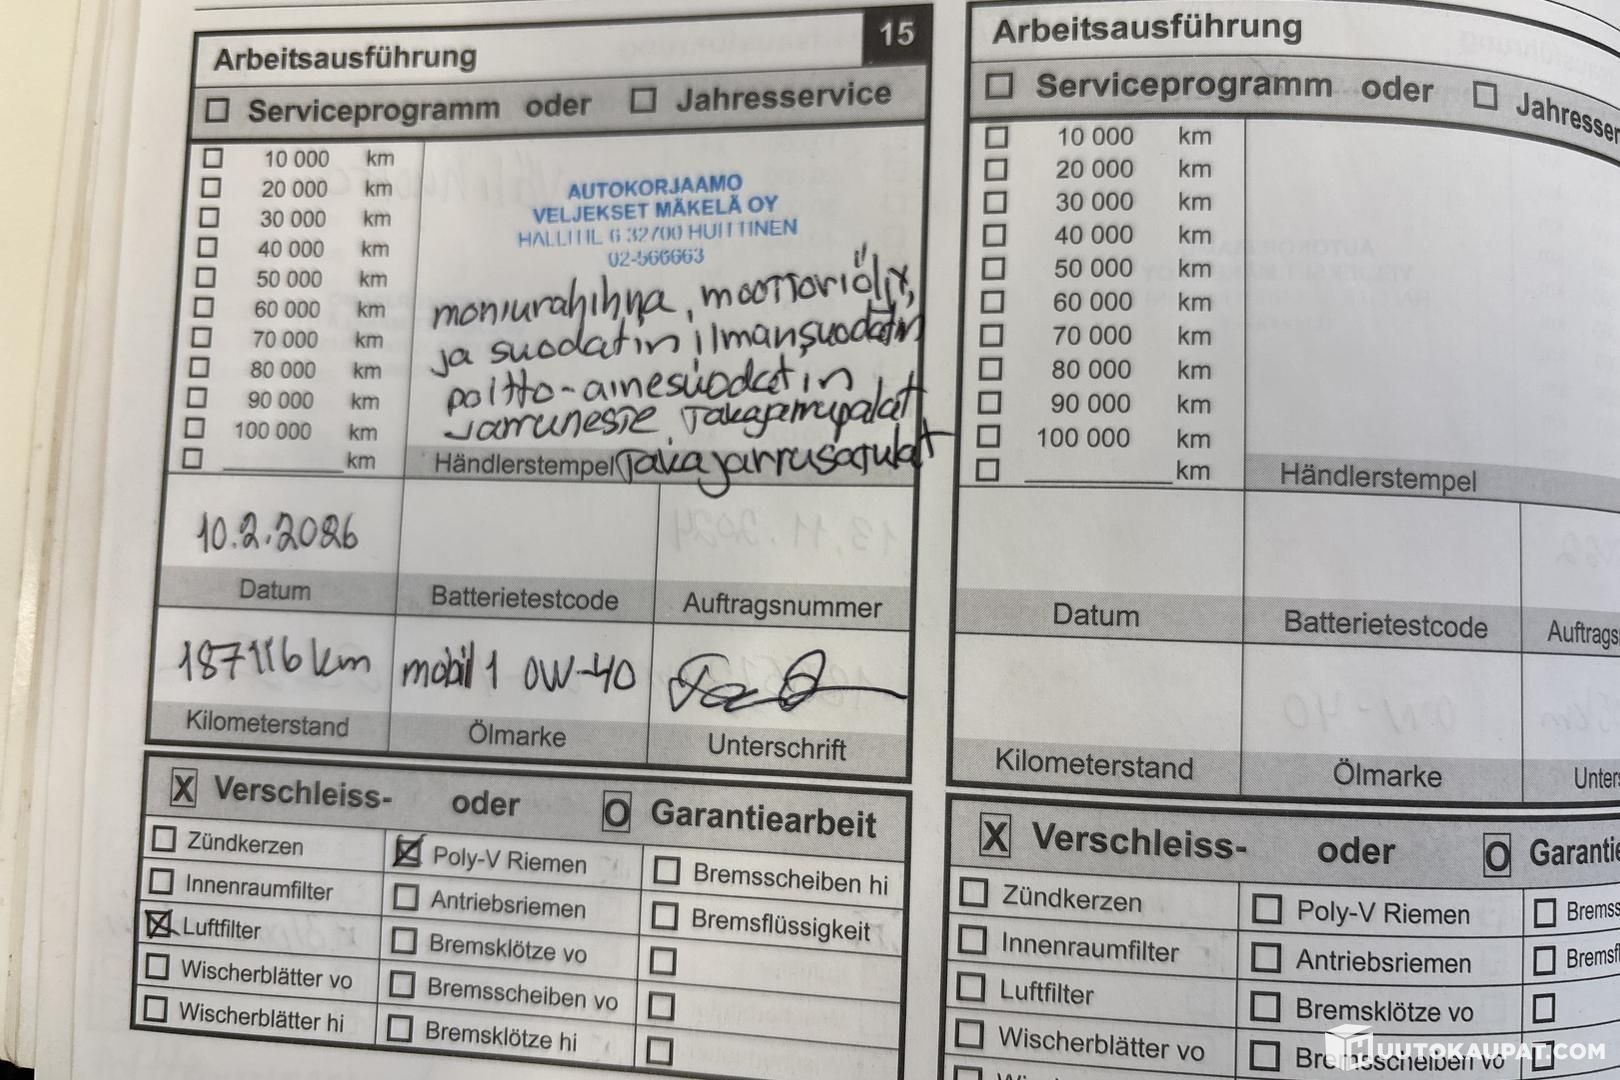 15
Arbeitsausführung
Serviceprogramm oder Jahresservice
10 000 km
20 000 km
30 000 km
40 000 km
50 000 km
60 000 km
70 000 km
80 000 km
90 000 km
100 000 km
km
AUTOKORJAAMO
VELJEKSET MÄKELÄ OY
HALLITIL 6 32700 HUITTINEN
02-566663
moniurahihna, moottoriöljy,
ja suodatin ilmansuodatin
poltto-ainesuodatin
Jarruneste, Takajarrupalat
Händlerstempel Takajarrusatulat
10.2.2026
Datum
Batterietestcode
Auftragsnummer
187116 km
mobil 1 0W-40
Kilometerstand
Ölmarke
Unterschrift
X Verschleiss- oder O Garantiearbeit
Zündkerzen
Poly-V Riemen
Bremsscheiben hi
Innenraumfilter
Antriebsriemen
Bremsflüssigkeit
Luftfilter
Bremsklötze vo
Wischerblätter vo
Bremsscheiben vo
Wischerblätter hi
Bremsklötze hi
Arbeitsausführung
Serviceprogramm oder Jahresser
10 000 km
20 000 km
30 000 km
40 000 km
50 000 km
60 000 km
70 000 km
80 000 km
90 000 km
100 000 km
km
Händlerstempel
Datum
Batterietestcode
Auftrags
Kilometerstand
Ölmarke
Unters
X Verschleiss- oder O Garantie
Zündkerzen
Poly-V Riemen
Bremss
Innenraumfilter
Antriebsriemen
Bremsfl
Luftfilter
Bremsklötze vo
Wischerblätter vo
Bremsscheiben vo
UUTOKAUPAT.COM